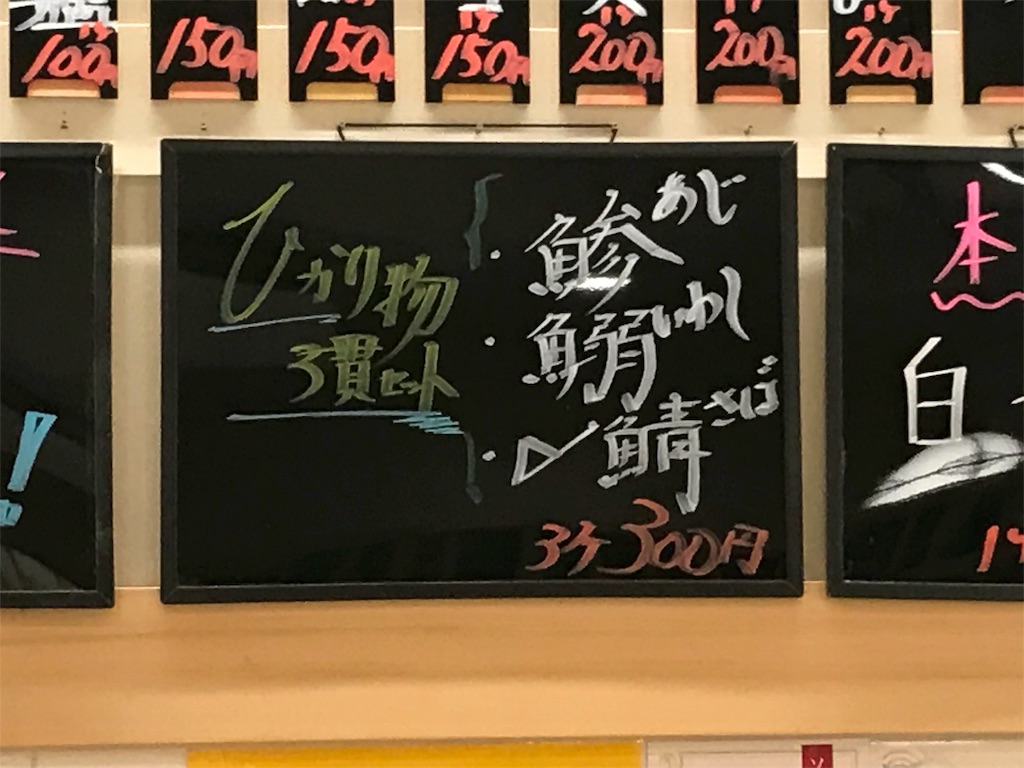 100円
150円
150円
1ケ
150円
1ケ
200円
1ケ
200円
1ケ
200円
ひかり物
3貫セット
・鯵 あじ
・鰯 いわし
・〆鯖 さば
3ケ 300円
!
本
白